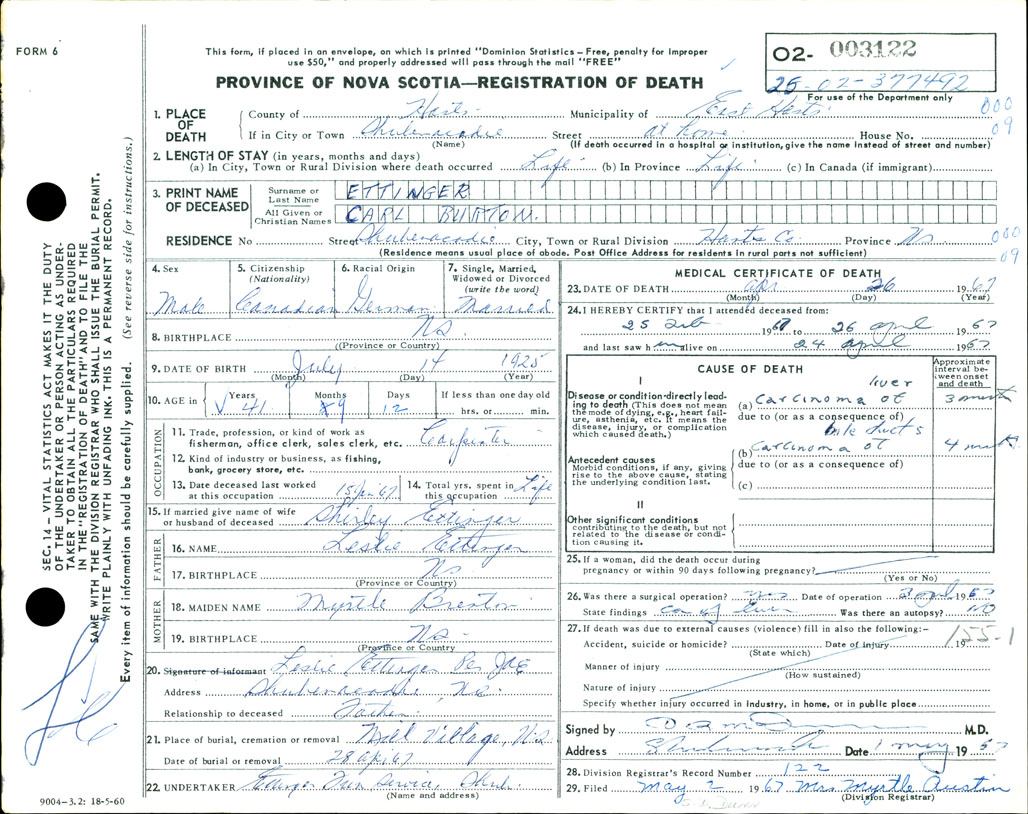 FORM 6
This form, if placed in an envelope, on which is printed "Dominion Statistics – Free, penalty for improper
use $50," and properly addressed will pass through the mail "FREE"
PROVINCE OF NOVA SCOTIA—REGISTRATION OF DEATH
02- 003122
25-02-377492
For use of the Department only
000
09
1. PLACE OF DEATH
County of Hants Municipality of East Hants
If in City or Town Shubenacadie Street at home House No.
(Name) (If death occurred in a hospital or institution, give the name instead of street and number)
2. LENGTH OF STAY (in years, months and days)
(a) In City, Town or Rural Division where death occurred Life (b) In Province Life (c) In Canada (if immigrant)
3. PRINT NAME OF DECEASED
Surname or Last Name ETTINGER
All Given or Christian Names CARL BURTON.
RESIDENCE No Street Shubenacadie City, Town or Rural Division Hants Co. Province NS
000
09
(Residence means usual place of abode. Post Office Address for residents in rural parts not sufficient)
4. Sex Male
5. Citizenship (Nationality) Canadian
6. Racial Origin German
7. Single, Married, Widowed or Divorced (write the word) Married
8. BIRTHPLACE NS
((Province or Country)
9. DATE OF BIRTH July 14 1925
(Month) (Day) (Year)
10. AGE in Years 41 Months 9 Days 12 If less than one day old hrs. or min.
OCCUPATION
11. Trade, profession, or kind of work as
fisherman, office clerk, sales clerk, etc. Carpenter
12. Kind of industry or business, as fishing,
bank, grocery store, etc.
13. Date deceased last worked
at this occupation 67
14. Total yrs. spent in
this occupation Life
15. If married give name of wife
or husband of deceased Shirley Ettinger
FATHER
16. NAME Leslie Ettinger
17. BIRTHPLACE NS
(Province or Country)
MOTHER
18. MAIDEN NAME Myrtle
19. BIRTHPLACE NS
(Province or Country)
20. Signature of informant Leslie Ettinger Per
Address Shubenacadie, NS.
Relationship to deceased Father
21. Place of burial, cremation or removal Mill Village, N.S.
Date of burial or removal 28 Apr 67
22. UNDERTAKER Ettinger Service, Shub.
(Name and address)
MEDICAL CERTIFICATE OF DEATH
23. DATE OF DEATH apr 26 1967
(Month) (Day) (Year)
24. I HEREBY CERTIFY that I attended deceased from:
25 Feb 1967 to 26 april 1967
and last saw him alive on 24 april 1967
CAUSE OF DEATH
Approximate interval between onset and death
I
Disease or condition directly leading to death (This does not mean the mode of dying, e.g., heart failure, asthenia, etc. It means the disease, injury, or complication which caused death.)
liver
(a) Carcinoma of 3 mnth
due to (or as a consequence of)
bile ducts
(b) Carcinoma of 4 mnth
due to (or as a consequence of)
(c)
Antecedent causes
Morbid conditions, if any, giving rise to the above cause, stating the underlying condition last.
II
Other significant conditions
contributing to the death, but not related to the disease or condition causing it.
25. If a woman, did the death occur during
pregnancy or within 90 days following pregnancy?
(Yes or No)
26. Was there a surgical operation? yes Date of operation april 1967
State findings ca of liver Was there an autopsy? NO
27. If death was due to external causes (violence) fill in also the following:–
155-1
Accident, suicide or homicide? Date of injury 19
(State which)
Manner of injury
(How sustained)
Nature of injury
Specify whether injury occurred in industry, in home, or in public place
Signed by M.D.
Address Date 1 may 1967
28. Division Registrar's Record Number 122
29. Filed May 2 1967 Mrs Myrtle Austin
(Division Registrar)
SEC. 14 – VITAL STATISTICS ACT MAKES IT THE DUTY
OF THE UNDERTAKER OR PERSON ACTING AS UNDER-
TAKER TO OBTAIN ALL THE PARTICULARS REQUIRED
IN THE "REGISTRATION OF DEATH" AND TO FILE THE
SAME WITH THE DIVISION REGISTRAR WHO SHALL ISSUE THE BURIAL PERMIT.
WRITE PLAINLY WITH UNFADING INK. THIS IS A PERMANENT RECORD.
Every item of information should be carefully supplied. (See reverse side for instructions.)
9004–3.2: 18-5-60